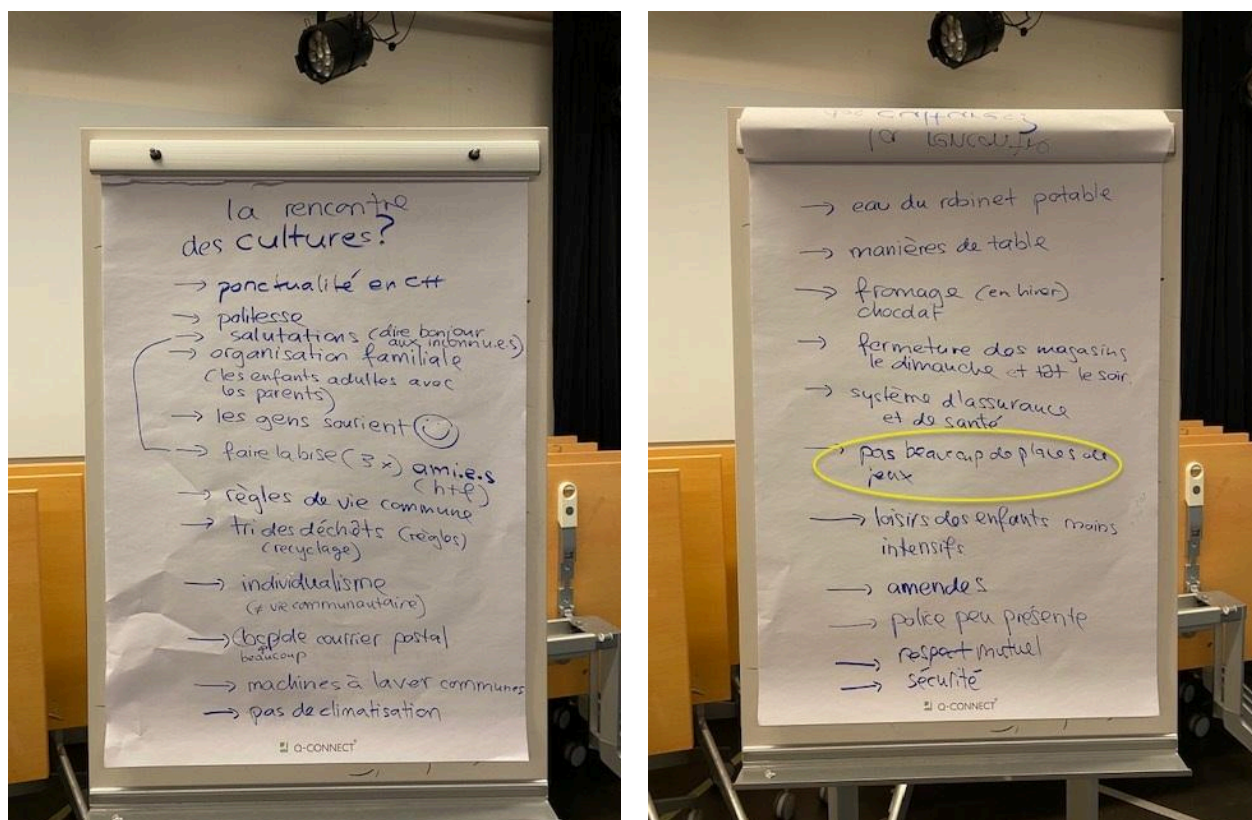 la rencontre
des cultures?
→ ponctualité en CH
→ politesse
→ salutations (dire bonjour
aux inconnu.e.s)
→ organisation familiale
(les enfants adultes avec
les parents)
→ les gens sourient
→ faire la bise (3x) ami.e.s
(h+f)
→ règles de vie commune
→ tri des déchêts (règles)
(recyclage)
→ individualisme
(≠ vie communautaire)
→ (bcp) de courrier postal
beaucoup
→ machines à laver communes
→ pas de climatisation
Q-CONNECT
des cultures?
la rencontre
→ eau du robinet potable
→ manières de table
→ fromage (en hiver)
chocolat
→ fermeture des magasins
le dimanche et tôt le soir.
→ système d'assurance
et de santé
→ pas beaucoup de places de
jeux
→ loisirs des enfants moins
intensifs
→ amendes
→ police peu présente
→ respect mutuel
→ sécurité
Q-CONNECT